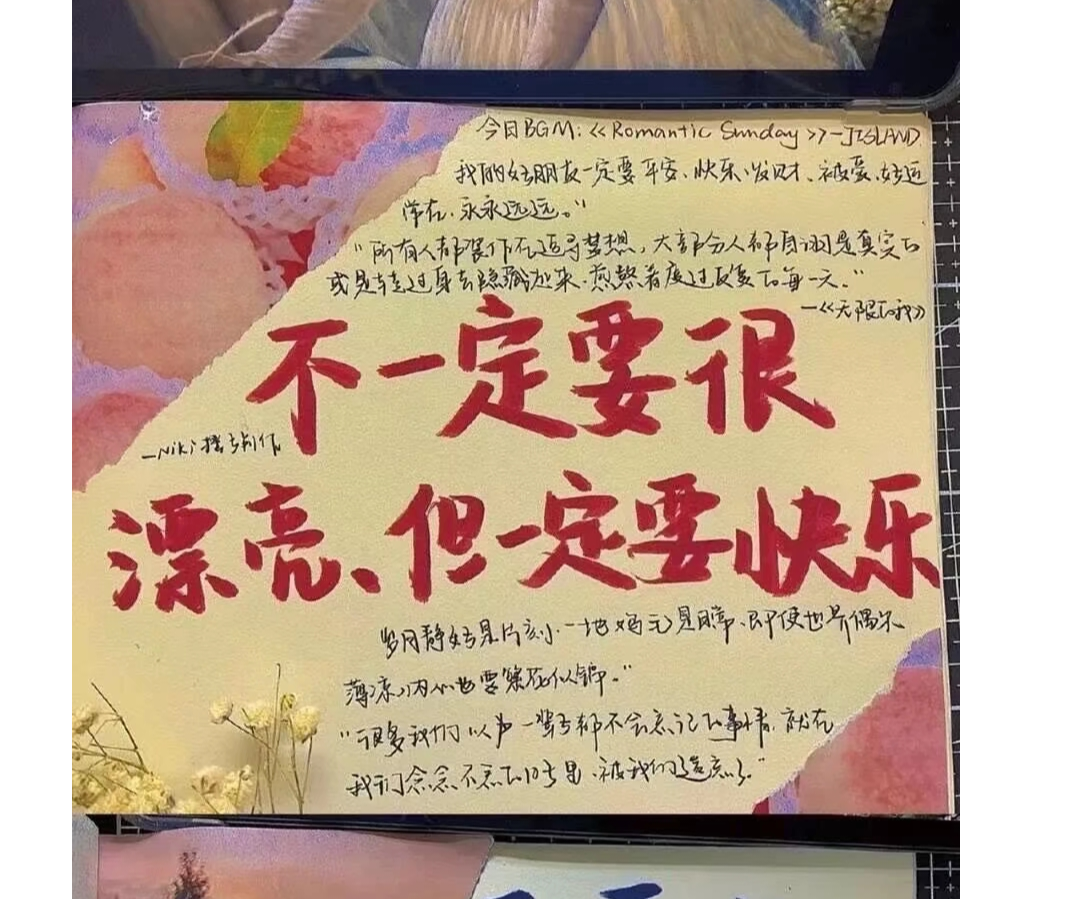 今日BGM:《Romantic Sunday》-JISLAND
我的好朋友一定要平安、快乐、发财、被爱、好运
常在、永永远远。”
“所有人都装作在追寻梦想，大部分人都自诩是真实的
或是转过身去隐藏起来，煎熬着度过反复的每一天。”
—《无限的我》
不一定要很
—Niki撰与制作
漂亮、但一定要快乐
岁月静好是片刻、一地鸡毛是日常、即便世界偶尔
薄凉、内心也要繁花似锦。”
“很多我们以为一辈子都不会忘记的事情，就在
我们念念不忘的日子里、被我们遗忘了。”